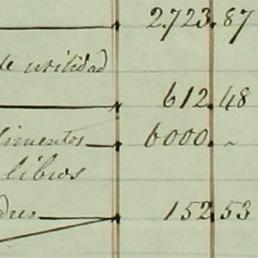 2.723.87
de utilidad
612.48
dimentos 6000. ~
libros
dres 152.53